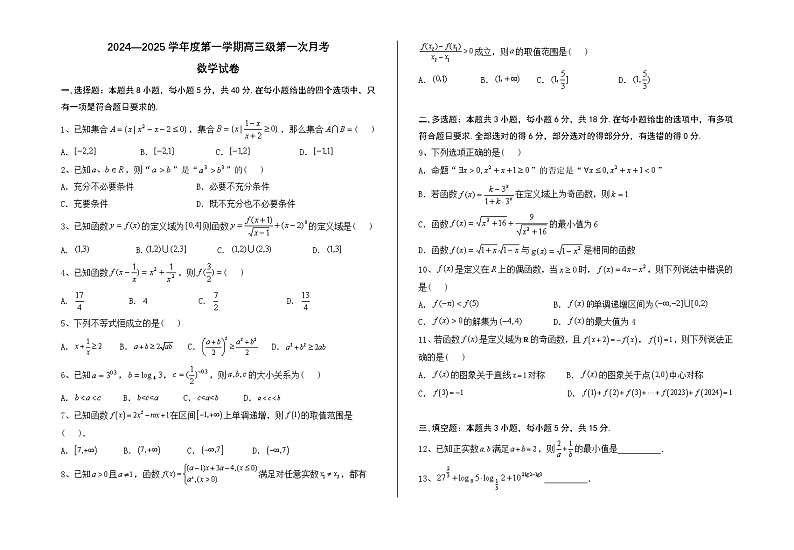 2024—2025 学年度第一学期高三级第一次月考
数学试卷
一、选择题：本题共 8 小题，每小题 5 分，共 40 分.在每小题给出的四个选项中，只
有一项是符合题目要求的.
1、已知集合 A={x|x²-x-2≤0}，集合 B={x|(1-x)/(x+2)≥0}，那么集合 A∩B=（ ）
A．[-2,2] B．[-2,1] C．[-1,2] D．[-1,1]
2、已知a、b∈R，则“a>b”是“a³>b³”的（ ）
A．充分不必要条件 B．必要不充分条件
C．充要条件 D．既不充分也不必要条件
3、已知函数y=f(x)的定义域为[0,4]则函数y=f(x+1)/√(x-1)+(x-2)⁰的定义域是（ ）
A．(1,3) B.(1,2)∪(2,3] C．(1,2)∪(2,3) D．(1,3]
4、已知函数f(x-1/x)=x²+1/x²，则f(3/2)=（ ）
A．17/4 B．4 C．7/2 D．13/4
5、下列不等式恒成立的是（ ）
A．x+1/x≥2 B．a+b≥2√ab C．((a+b)/2)²≥(a²+b²)/2 D．a²+b²≥2ab
6、已知 a=3^0.3，b=log₄3，c=(1/2)^-0.3，则a,b,c的大小关系为（ ）
A．b<a<c B．b<c<a C．c<a<b D．a<c<b
7、已知函数 f(x)=2x²-mx+1在区间[-1,+∞)上单调递增，则 f(1)的取值范围是
（ ）．
A．[7,+∞) B．(7,+∞) C．(-∞,7] D．(-∞,7)
8、已知a>0且a≠1，函数 f(x)={(a-1)x+3a-4,(x≤0) aˣ,(x>0) 满足对任意实数x₁≠x₂，都有
(f(x₂)-f(x₁))/(x₂-x₁)>0成立，则a的取值范围是（ ）
A．(0,1) B．(1,+∞) C．(1,5/3] D．(1,5/3)
二、多选题：本题共 3 小题，每小题 6 分，共 18 分.在每小题给出的选项中，有多项
符合题目要求.全部选对的得 6 分，部分选对的得部分分，有选错的得 0 分.
9、下列选项正确的是（ ）
A．命题“∃x>0,x²+x+1≥0”的否定是“∀x≤0,x²+x+1<0”
B．若函数f(x)=(k-3ˣ)/(1+k·3ˣ)在定义域上为奇函数，则k=1
C．函数f(x)=√(x²+16)+9/√(x²+16)的最小值为6
D．函数f(x)=√(1+x)√(1-x)与g(x)=√(1-x²)是相同的函数
10、f(x)是定义在R上的偶函数，当x≥0时，f(x)=4x-x²，则下列说法中错误的
是（ ）
A．f(-π)<f(5) B．f(x)的单调递增区间为(-∞,-2]∪[0,2)
C．f(x)>0的解集为(-4,4) D．f(x)的最大值为 4
11、若函数f(x)是定义域为R的奇函数，且f(x+2)=-f(x)，f(1)=1，则下列说法正
确的是（ ）
A．f(x)的图象关于直线x=1对称 B．f(x)的图象关于点(2,0)中心对称
C．f(3)=-1 D．f(1)+f(2)+f(3)+⋯+f(2023)+f(2024)=1
三、填空题：本题共 3 小题，每小题 5 分，共 15 分.
12、已知正实数a,b满足a+b=2，则2/a+1/b的最小值是________．